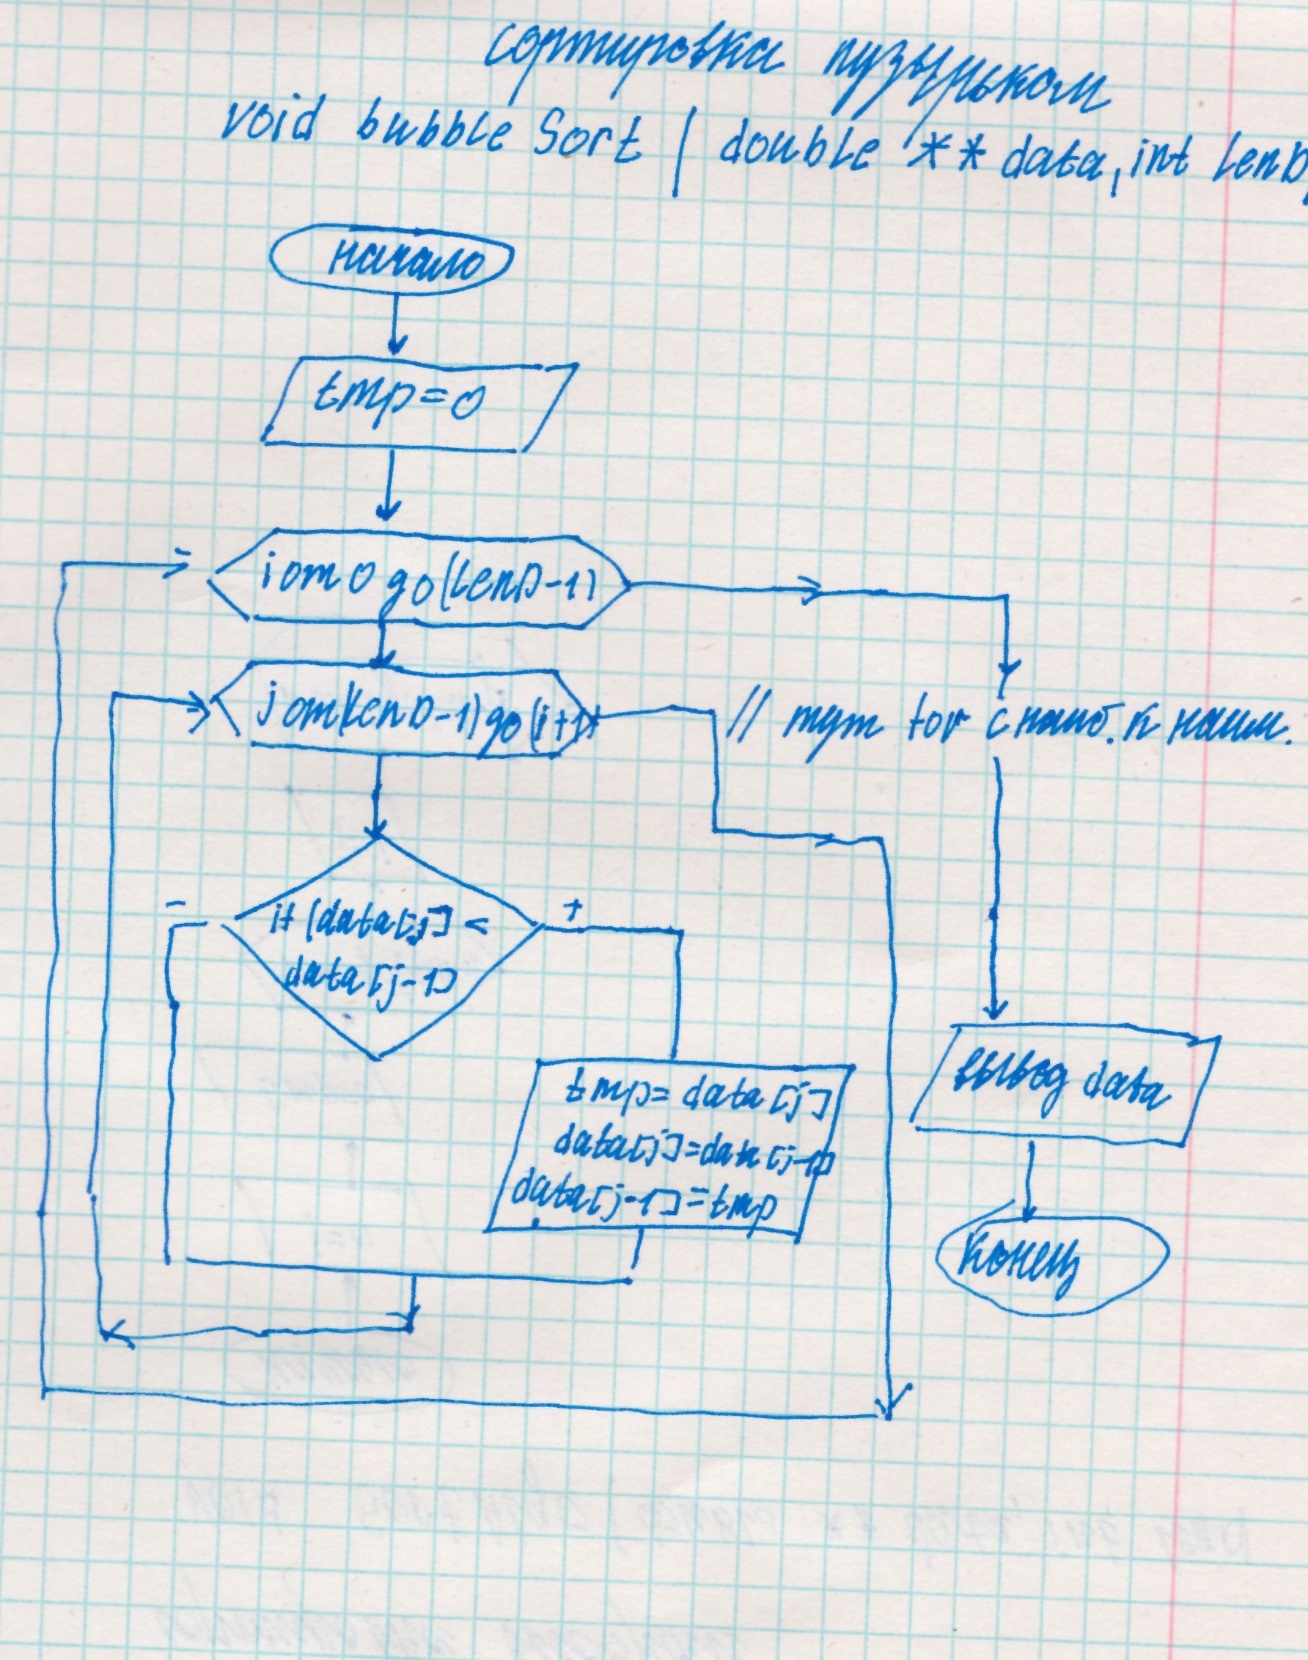 сортировка пузырьком
void bubble Sort ( double ** data, int LenD,
начало
tmp=0
i от 0 до (LenD-1)
j от (LenD-1) до (i+1)
// тут for с наиб. к наим.
-
+
if (data[j] <
data[j-1]
tmp= data[j]
data[j]=data[j-1]
data[j-1]=tmp
вывод data
конец